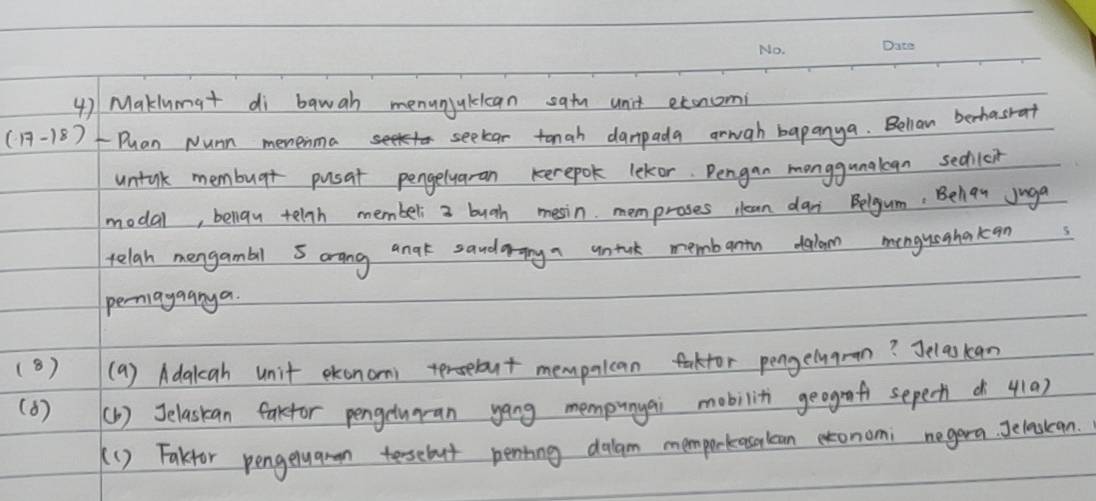 No. Date
4) Maklumat di bawah menunjukkan satu unit ekonomi
(17-18) - Puan Nunn menerima seekar tanah daripada arwah bapanya. Beliau berhasrat
untuk membuat pusat pengeluaran kerepok lekor. Dengan menggunakan sedikit
modal, beliau telah membeli 2 buah mesin memproses ikan dari Belgum. Beliau juga
telah mengambil 5 orang anak saudaranya untuk membantu dalam mengusahakan s
perniagaanya.
(8) (a) Adakah unit ekonomi tersebut merupakan faktor pengeluaran? Jelaskan
(8) (b) Jelaskan faktor pengeluaran yang mempunyai mobiliti geografi seperti di 4(a)
(c) Faktor pengeluaran tersebut penting dalam memperkasakan ekonomi negara. Jelaskan.